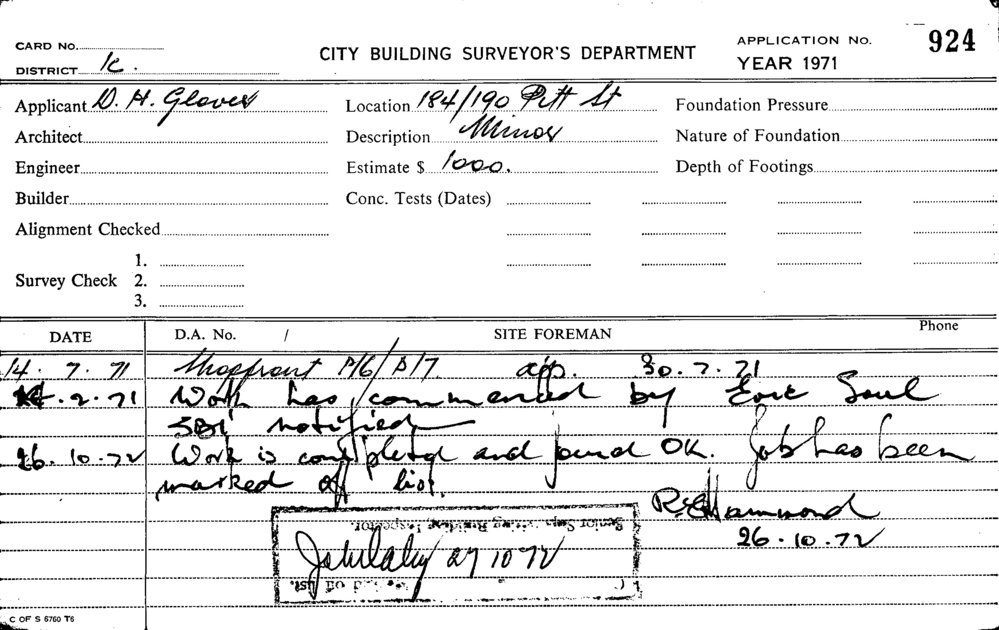 CARD No.
DISTRICT
CITY BUILDING SURVEYOR'S DEPARTMENT
APPLICATION No. 924
YEAR 1971
Applicant D. H. Glover Location 184/190 Pitt St Foundation Pressure
Architect Description Minor Nature of Foundation
Engineer Estimate $ 1000. Depth of Footings
Builder Conc. Tests (Dates)
Alignment Checked
1.
Survey Check 2.
3.
DATE D.A. No. / SITE FOREMAN Phone
14. 7. 71 Shopfront P/6/B/7 app. 30. 7. 71
.2.71 Work has commenced by Eric Soul
SBI notified
26.10.72 Work is completed and found OK. Job has been
marked off list.
R. Hammond
26.10.72
Senior Supervising Building Inspector.
27 10 72
off list.
C OF S 6760 T6